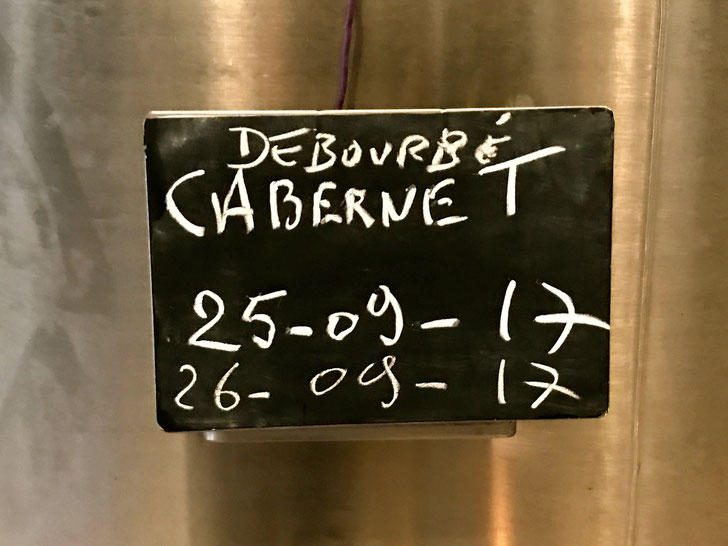 DEBOURBÉ
CABERNET
25-09-17
26-09-17